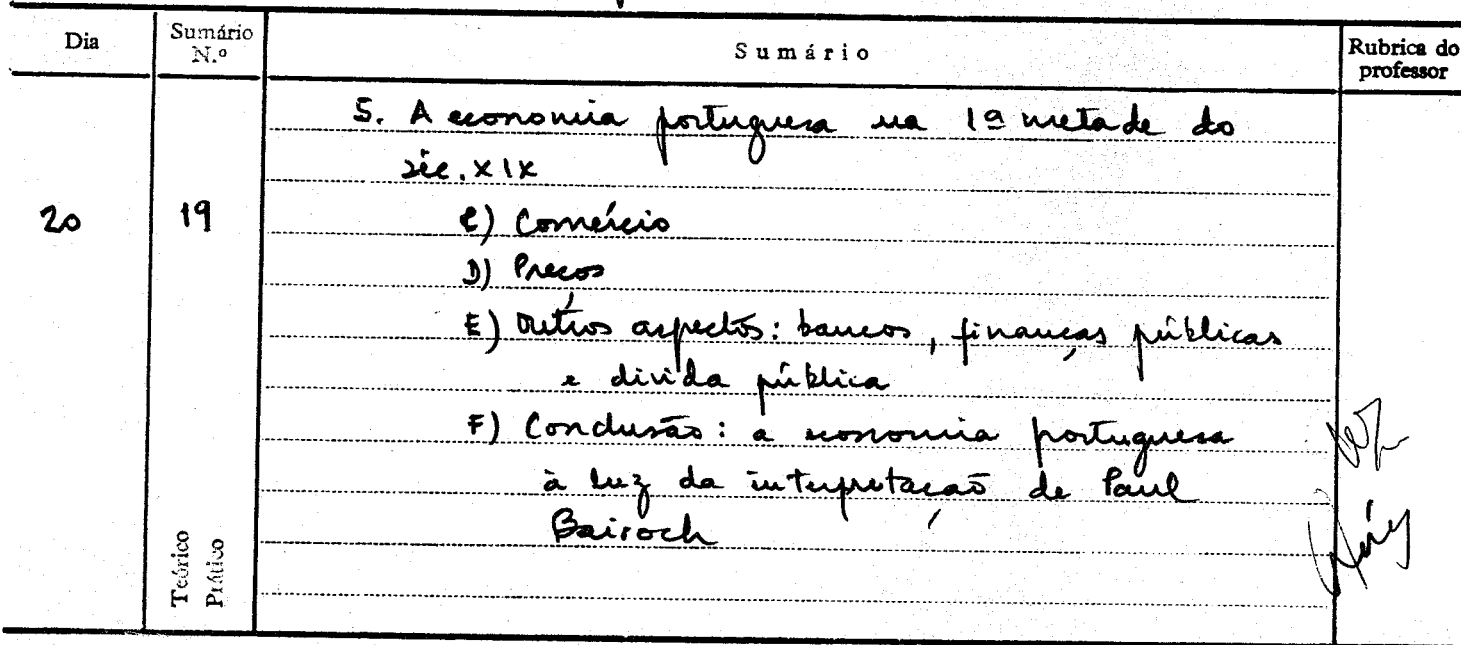 Dia
Sumário N.º
Sumário
Rubrica do professor
20
19
5. A economia portuguesa na 1ª metade do
séc. XIX
C) Comércio
D) Preços
E) Outros aspectos: bancos, finanças públicas
e dívida pública
F) Conclusão: a economia portuguesa
à luz da interpretação de Paul
Bairoch
Teórico
Prático